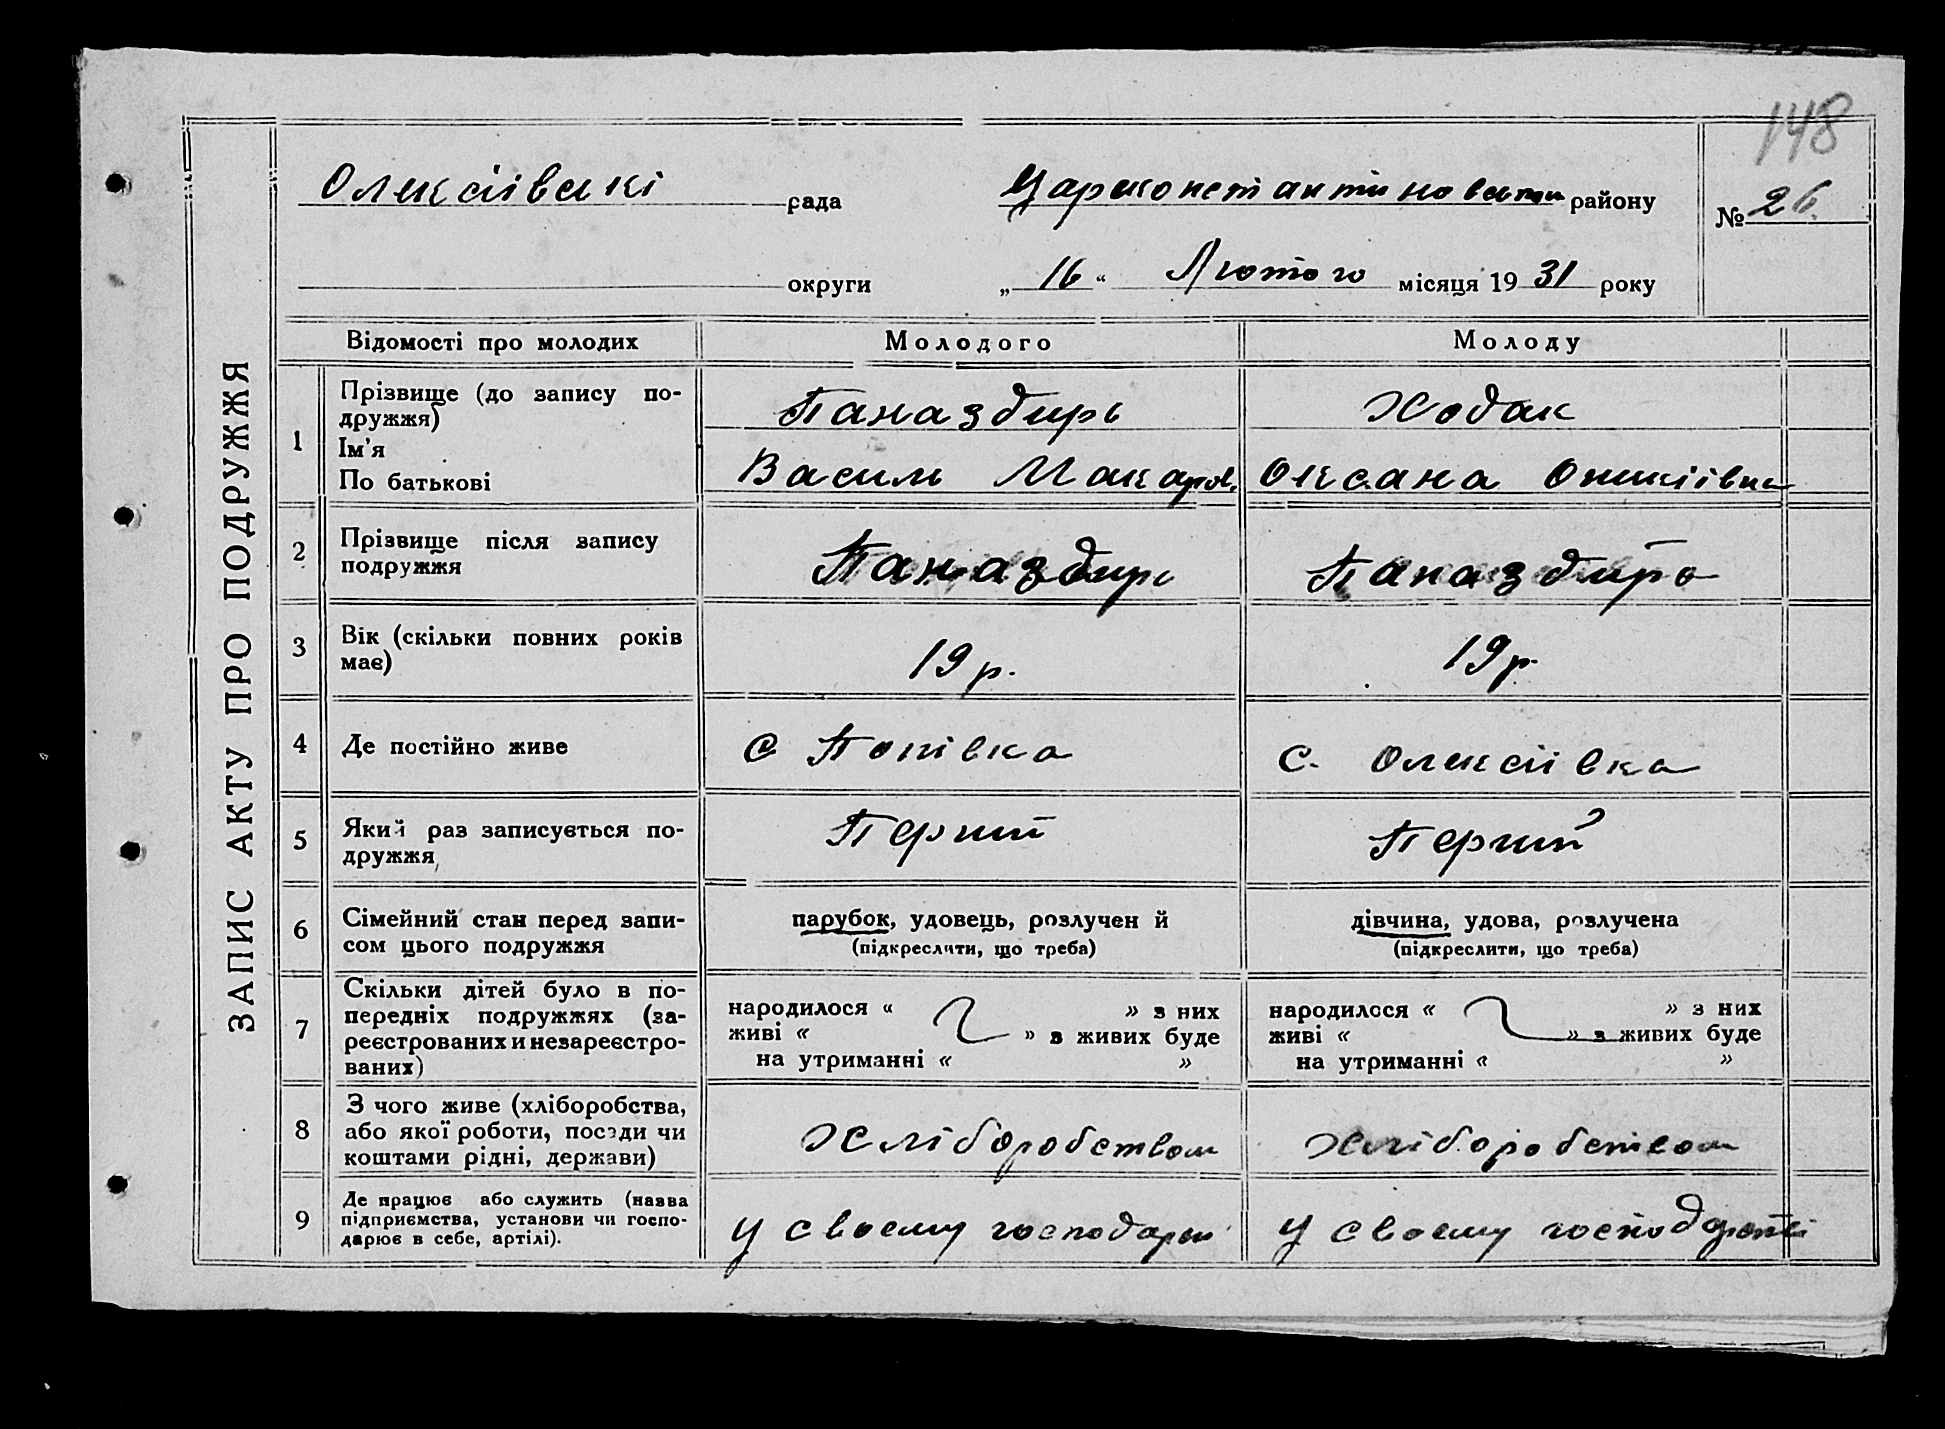 148
Олексіївські рада
Царсконстантиновського району
№ 26.
округи
„ 16 “ Лютого місяця 19 31 року
ЗАПИС АКТУ ПРО ПОДРУЖЖЯ
Відомості про молодих Молодого Молоду
1 Прізвище (до запису по-
дружжя)
Ім'я
По батькові
Паназдирь
Василь Макаров.
Ходак
Оксана
2 Прізвище після запису
подружжя
Паназдирь
Паназдирь
3 Вік (скільки повних років
має)
19 р.
19 р.
4 Де постійно живе
с Попівка
с. Олексіївка
5 Який раз записується по-
дружжя
Перший
Перший
6 Сімейний стан перед запи-
сом цього подружжя
парубок, удовець, розлучен й
(підкреслити, що треба)
дівчина, удова, розлучена
(підкреслити, що треба)
7 Скільки дітей було в по-
передніх подружжях (за-
реєстрованих и незареєстро-
ваних)
народилося « » з них
живі « » в живих буде
на утриманні « »
народилося « » з них
живі « » з живих буде
на утриманні « »
8 З чого живе (хліборобства,
або якої роботи, посади чи
коштами рідні, держави)
Хліборобством
Хліборобством
9 Де працює або служить (назва
підприємства, установи чи госпо-
дарює в себе, артілі).
у своєму господарст
у своєму господарстві